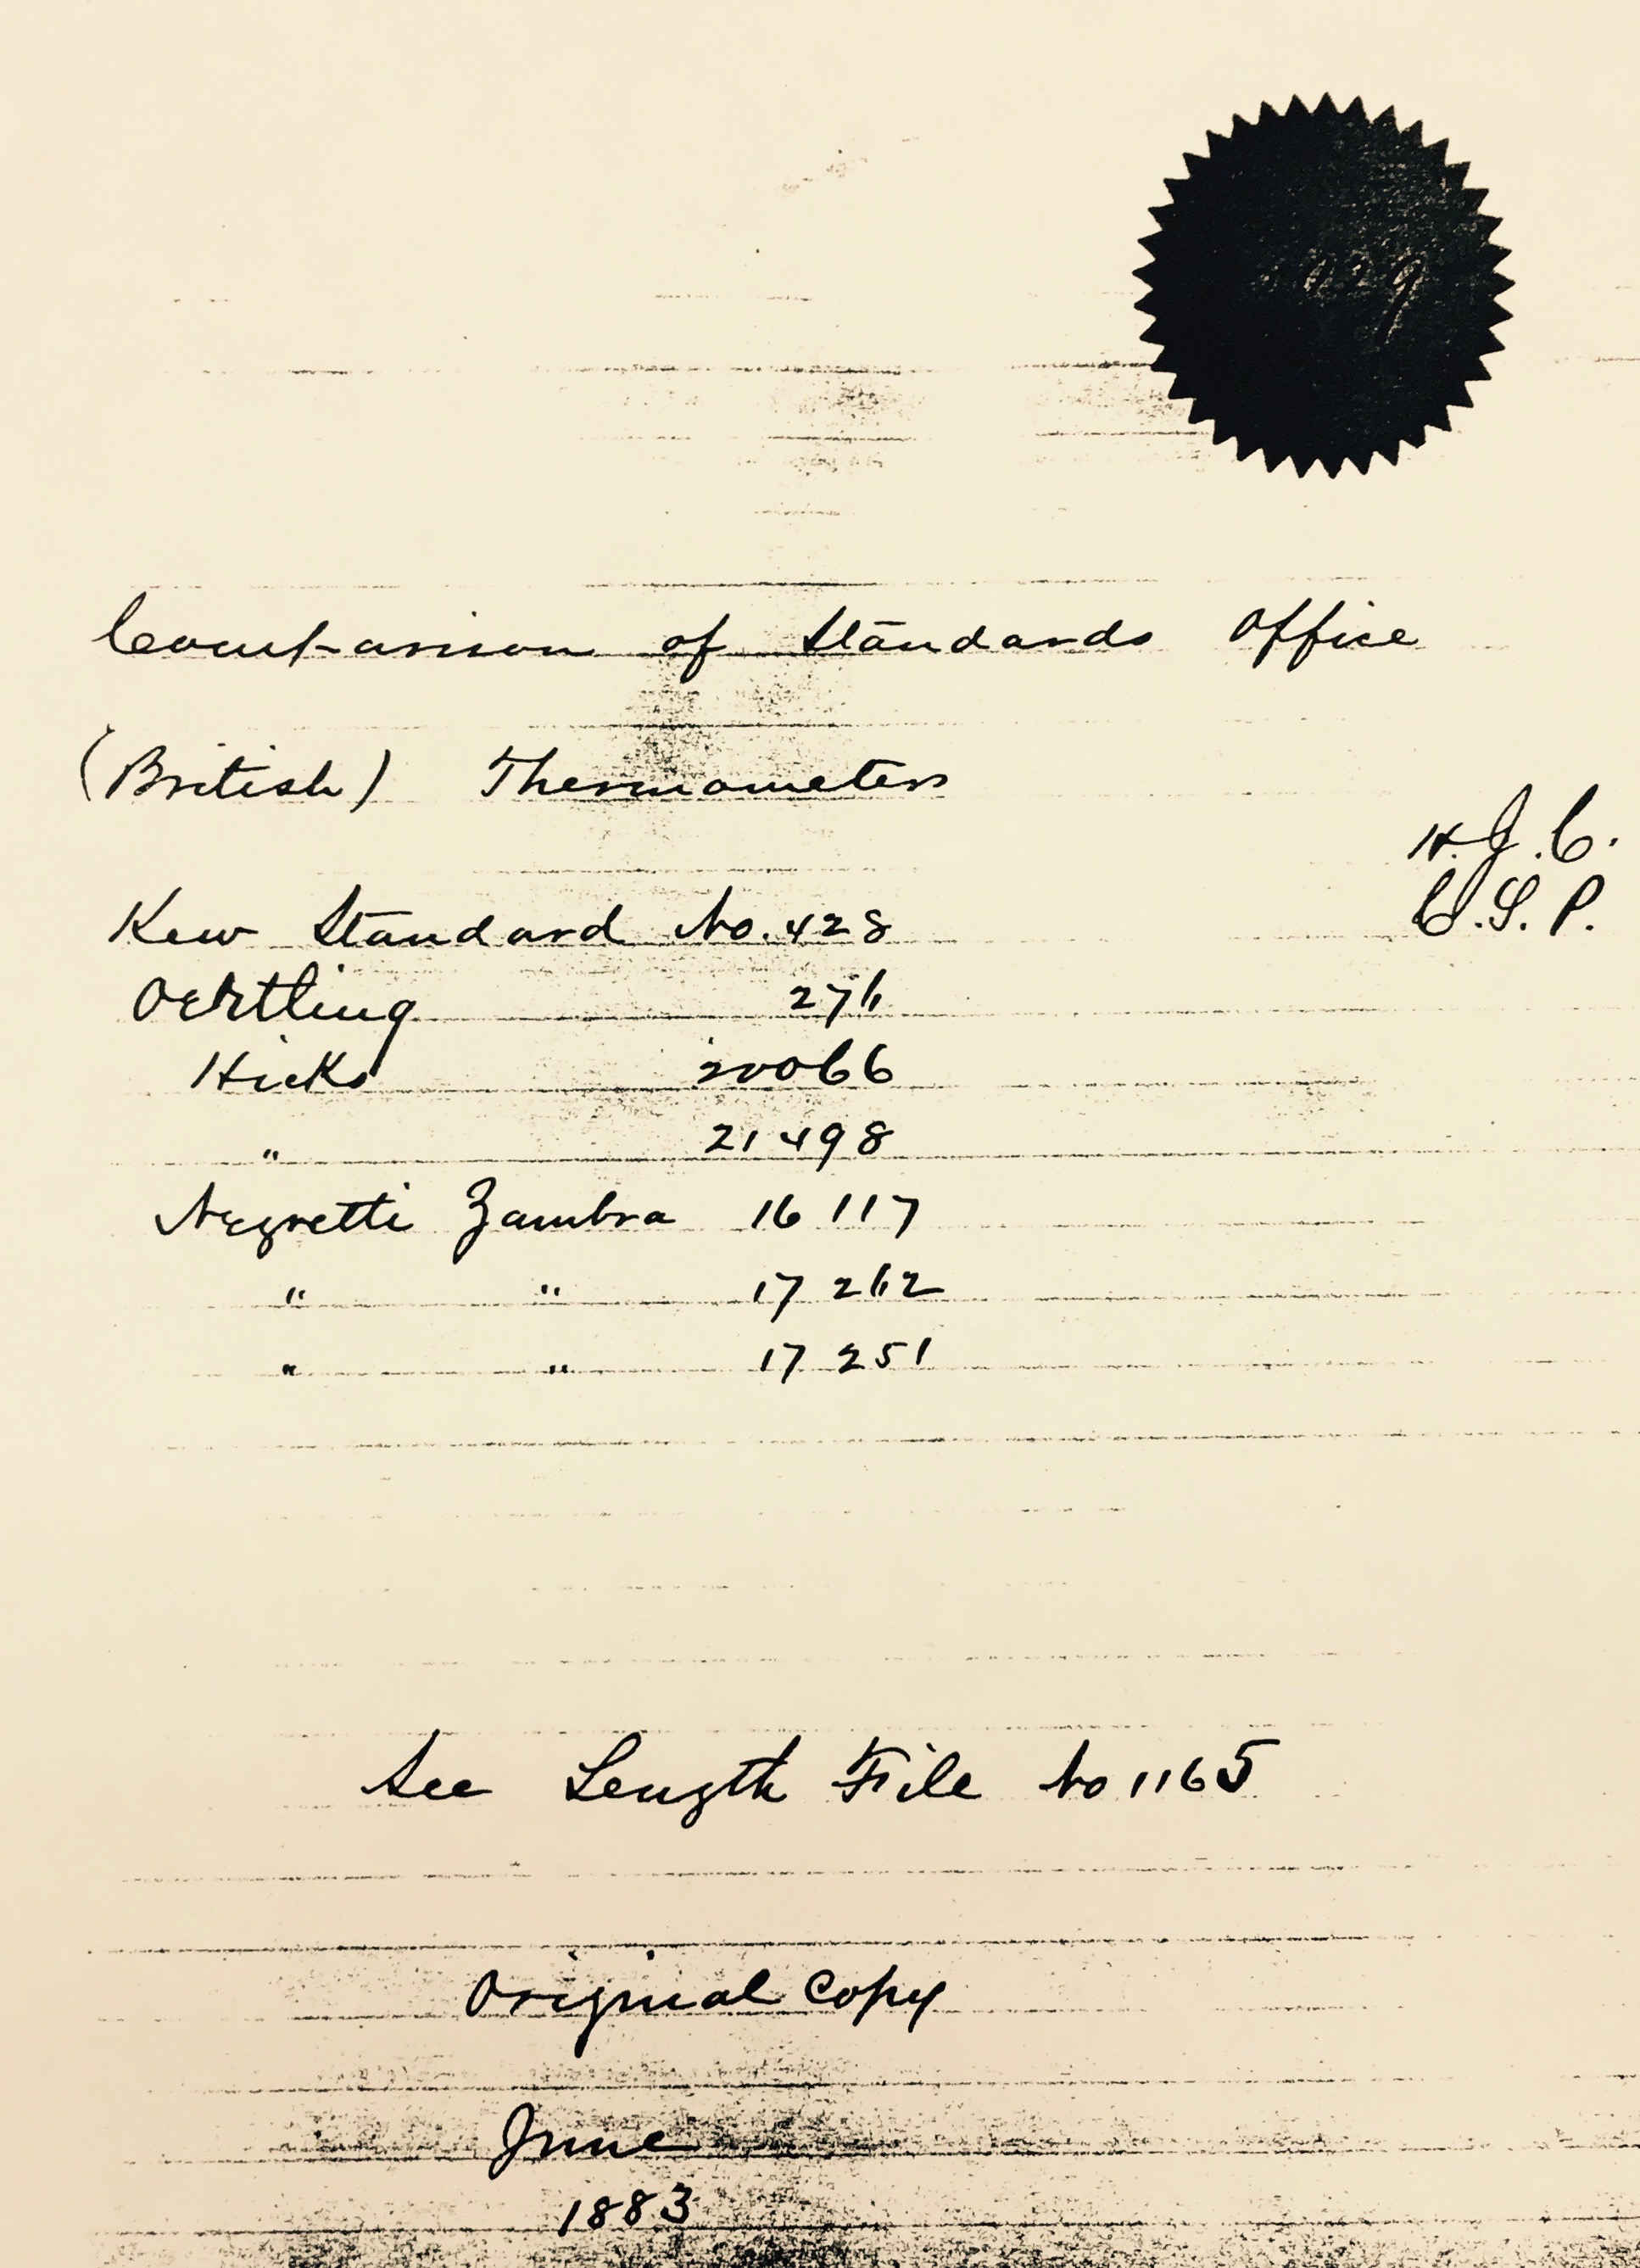 Comparison of Standards Office
(British) Thermometers
H.J.C.
C.S.P.
Kew Standard No. 428
Oertling 276
Hicks 20066
" 21498
Negretti Zambra 16 117
" " 17 262
" " 17 251
See Length File No 1165
Original Copy
June
1883